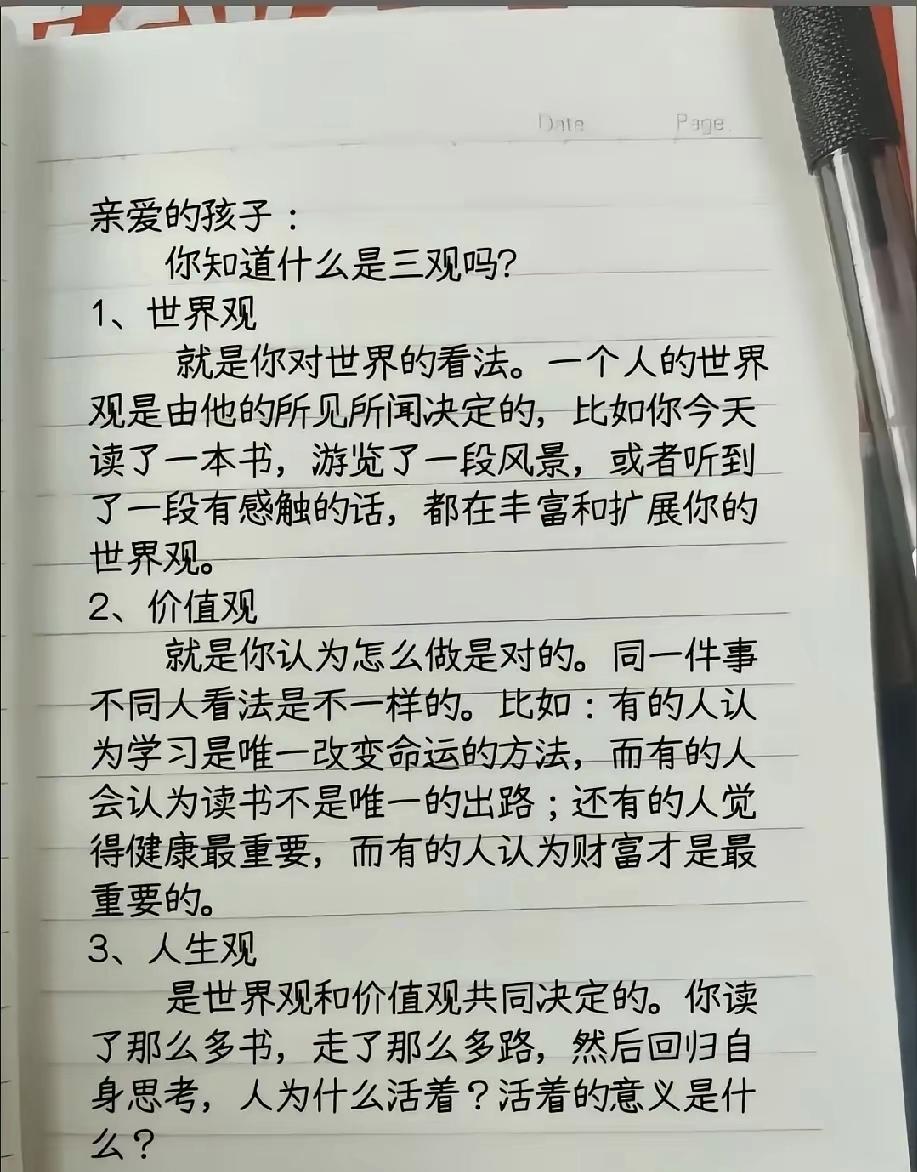 Date Page
亲爱的孩子：
你知道什么是三观吗？
1、世界观
就是你对世界的看法。一个人的世界
观是由他的所见所闻决定的，比如你今天
读了一本书，游览了一段风景，或者听到
了一段有感触的话，都在丰富和扩展你的
世界观。
2、价值观
就是你认为怎么做是对的。同一件事
不同人看法是不一样的。比如：有的人认
为学习是唯一改变命运的方法，而有的人
会认为读书不是唯一的出路；还有的人觉
得健康最重要，而有的人认为财富才是最
重要的。
3、人生观
是世界观和价值观共同决定的。你读
了那么多书，走了那么多路，然后回归自
身思考，人为什么活着？活着的意义是什
么？